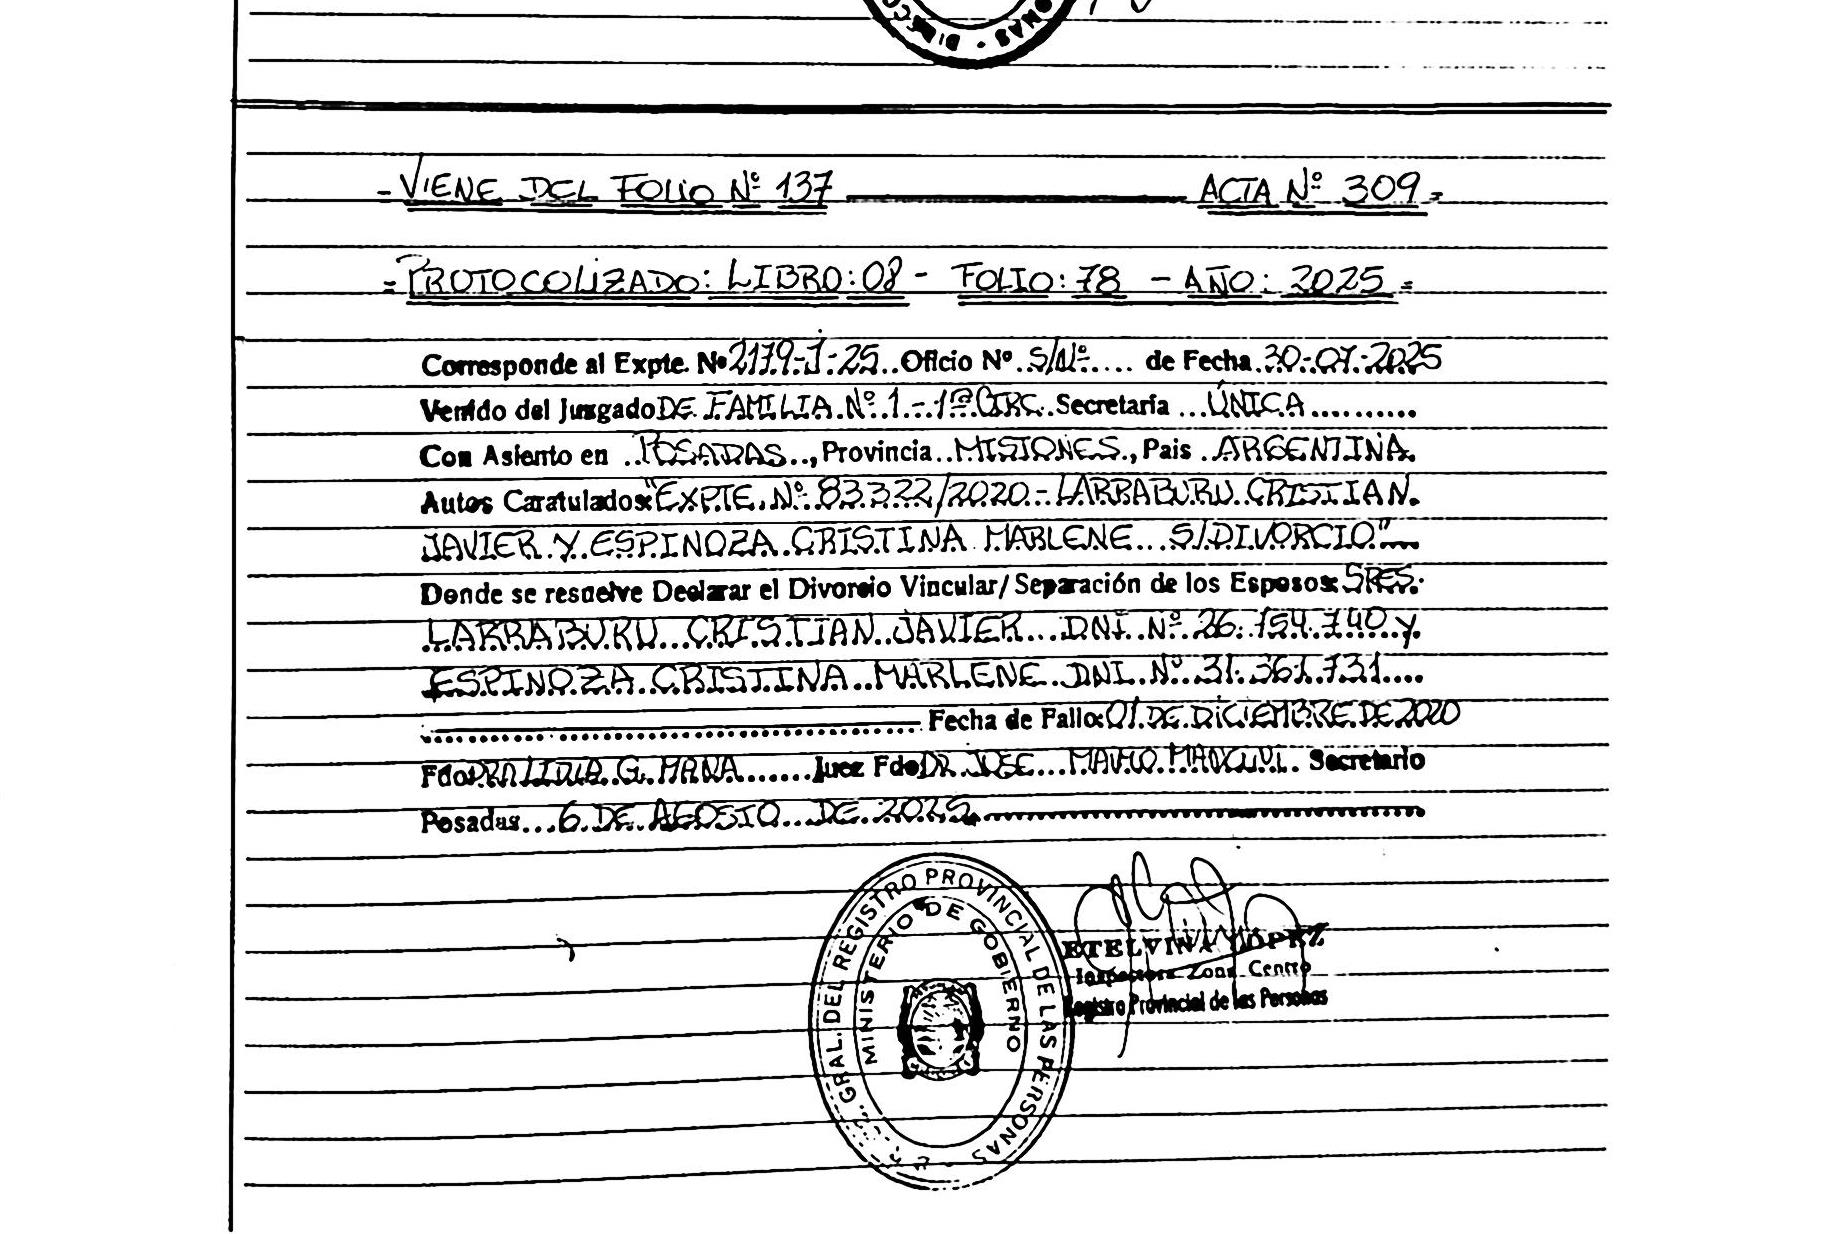 - VIENE DEL FOLIO Nº 137 ACTA Nº 309 =
= PROTOCOLIZADO: LIBRO: 08 - FOLIO: 78 - AÑO: 2025 =
Corresponde al Expte. Nº 2179-J-25.. Oficio Nº . S/Nº.... de Fecha 30-07-2025
Venido del Juzgado DE FAMILIA Nº 1 - 1ª CIRC. Secretaría ... ÚNICA ..........
Con Asiento en .. POSADAS .., Provincia .. MISIONES., País . ARGENTINA.
Autos Caratulados: "EXPTE. Nº 83322/2020 - LARRABURU CRISTIAN
JAVIER Y ESPINOZA CRISTINA MARLENE S/DIVORCIO"
Donde se resuelve Declarar el Divorcio Vincular/Separación de los Esposos: SRES.
LARRABURU CRISTIAN JAVIER DNI Nº 26.754.740 y
ESPINOZA CRISTINA MARLENE DNI Nº 31.361.731....
Fecha de Fallo: 01 DE DICIEMBRE DE 2020
Fdo: DRA LIDIA G. Juez Fdo DR JOSE Secretario
Posadas, ... 6 DE AGOSTO DE 2025
GRAL. DEL REGISTRO PROVINCIAL DE LAS PERSONAS
MINISTERIO DE GOBIERNO
ETELVINA LÓPEZ
Inspectora Zona Centro
Registro Provincial de las Personas